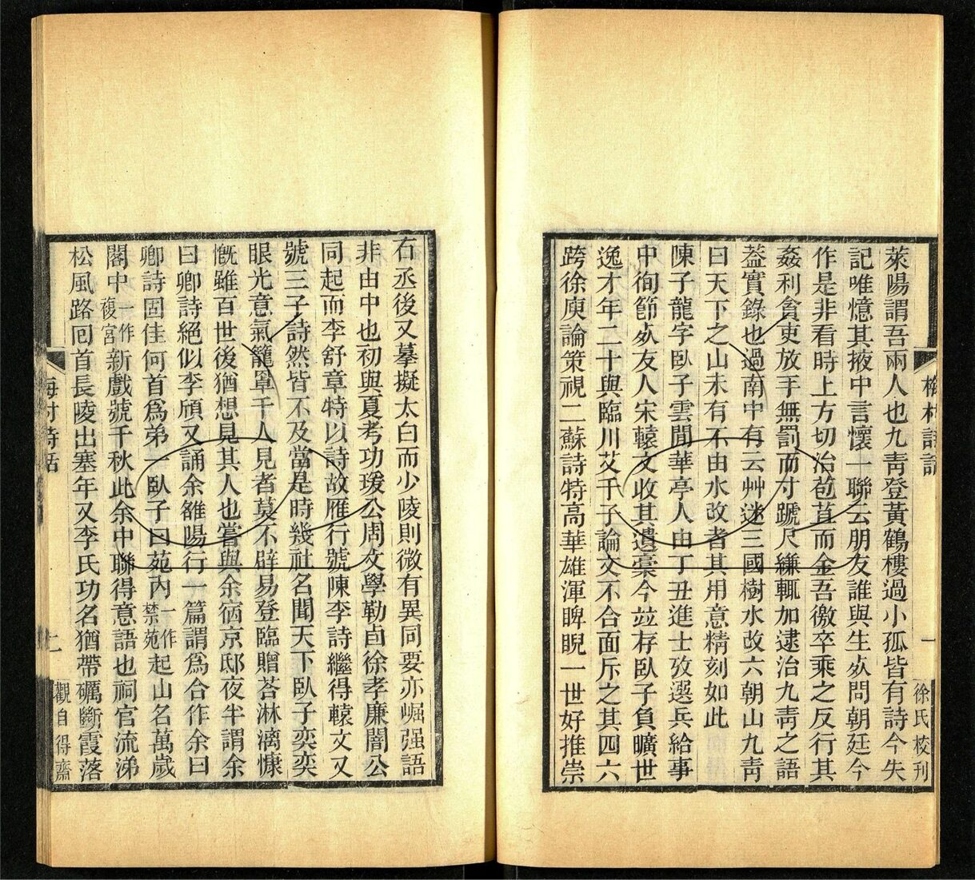 梅村詩話
一
徐氏校刋
萊陽謂吾兩人也九靑登黃鶴樓過小孤皆有詩今失
記唯憶其掖中言懷一聯云朋友誰與生𣦸問朝廷今
作是非看時上方切治苞苴而金吾徼卒乘之反行其
姦利貪吏放手無罰而寸蹏尺縑輒加逮治九靑之語
葢實錄也過南中有云艸迷三國樹水改六朝山九靑
曰天下之山未有不由水改者其用意精刻如此
陳子龍字臥子雲閒華亭人由丁丑進士攷選兵給事
中徇節𣦸友人宋轅文收其遺稾今竝存臥子負曠世
逸才年二十與臨川艾千子論文不合面斥之其四六
跨徐庾論策視二蘇詩特高華雄渾睥睨一世好推崇
右丞後又摹擬太白而少陵則微有異同要亦崛强語
非由中也初與夏考功瑗公周文學勒卣徐孝廉闇公
同起而李舒章特以詩故雁行號陳李詩繼得轅文又
號三子詩然皆不及當是時幾社名聞天下臥子奕奕
眼光意氣籠罩千人見者莫不辟易登臨贈荅淋漓慷
慨雖百世後猶想見其人也嘗與余宿京邸夜半謂余
曰卿詩絕似李頎又誦余雒陽行一篇謂爲合作余曰
卿詩固佳何首爲弟一臥子曰苑內一作禁苑起山名萬歲
閣中一作複宮新戲號千秋此余中聯得意語也祠官流涕
松風路回首長陵出塞年又李氏功名猶帶礪斷霞落
梅村詩話
二
觀自得齋